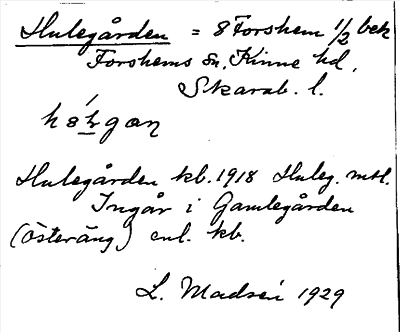 Hulegården = 8 Forshem 1/2 bek
Forshems sn, Kinne hd,
Skarab. l.
Hulegården kb. 1918 Huleg. mtl.
Ingår i Gamlegården
(Österäng) enl. kb.
L. Madsén 1929